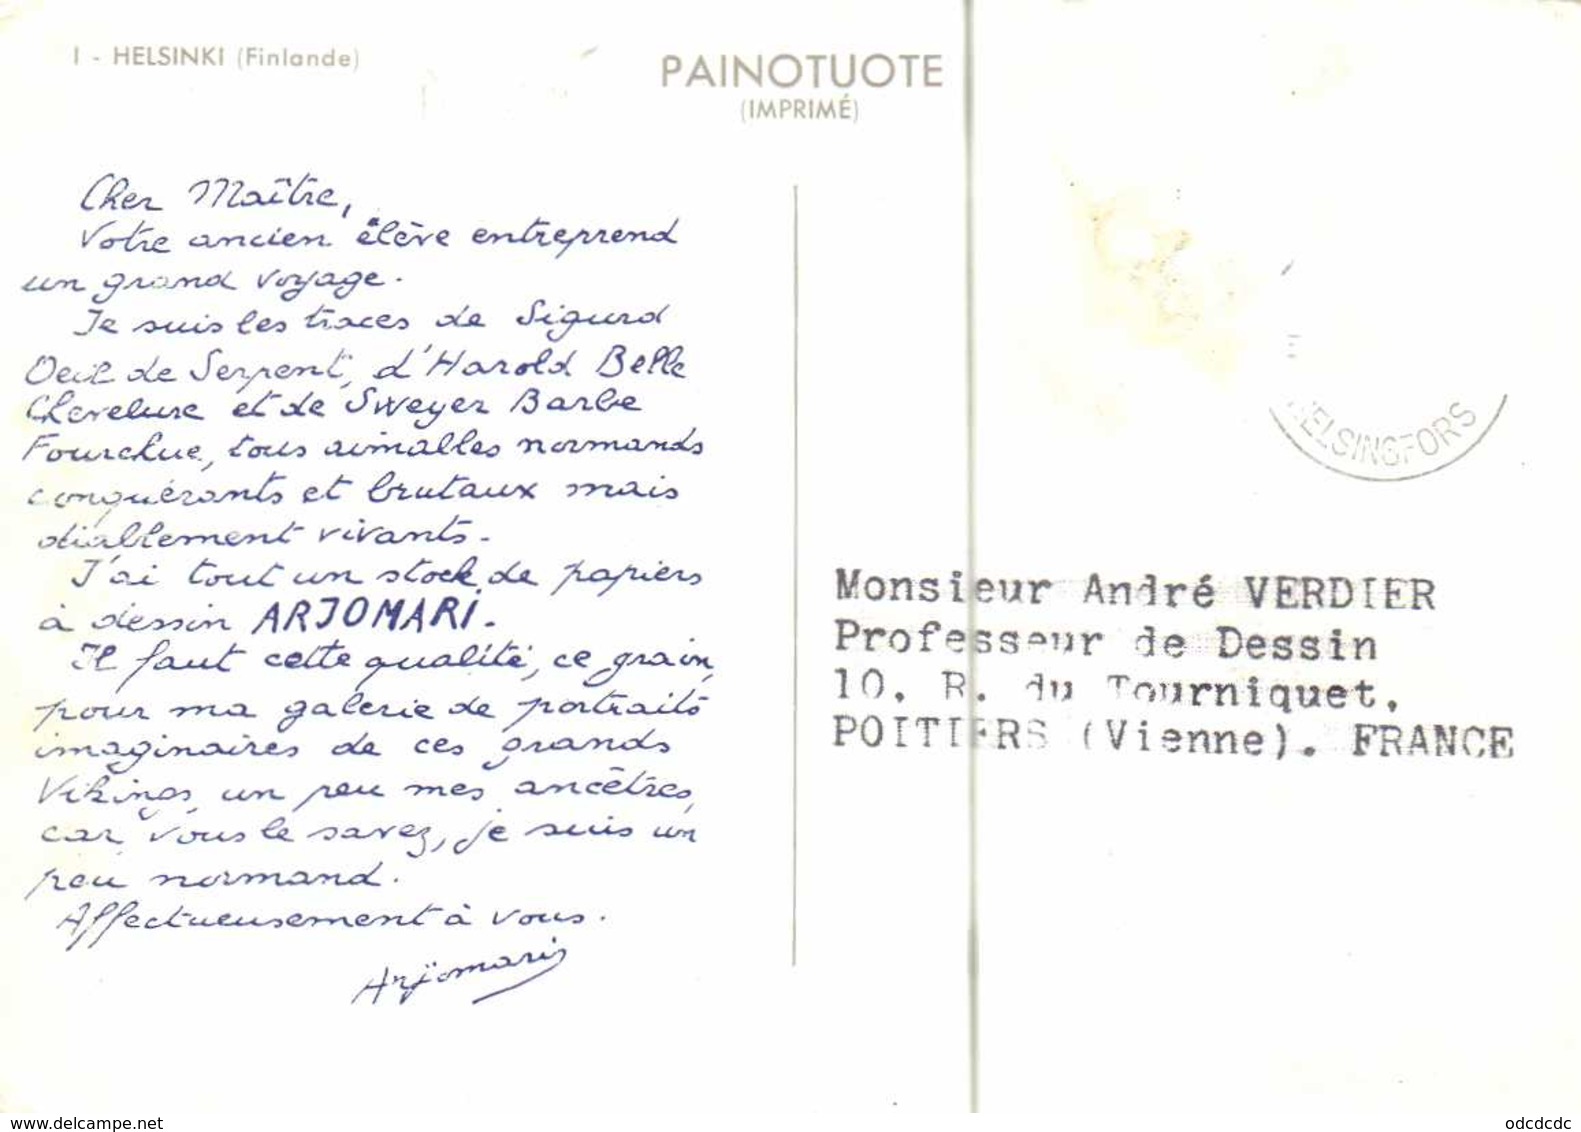 I - HELSINKI (Finlande)
PAINOTUOTE
(IMPRIMÉ)
Cher Maître,
Votre ancien élève entreprend
un grand voyage.
Je suis les traces de Sigurd
Oeil de Serpent, d'Harold Belle
Chevelure et de Sweyer Barbe
Fourchue, tous aimables normands
conquérants et brutaux mais
diablement vivants.
J'ai tout un stock de papiers
à dessin ARJOMARI.
Il faut cette qualité, ce grain,
pour ma galerie de portraits
imaginaires de ces grands
Vikings, un peu mes ancêtres,
car, vous le savez, je suis un
peu normand.
Affectueusement à vous.
Arjomari
HELSINGFORS
Monsieur André VERDIER
Professeur de Dessin
10, R. du Tourniquet.
POITIERS (Vienne). FRANCE
www.delcampe.net
odcdcdc